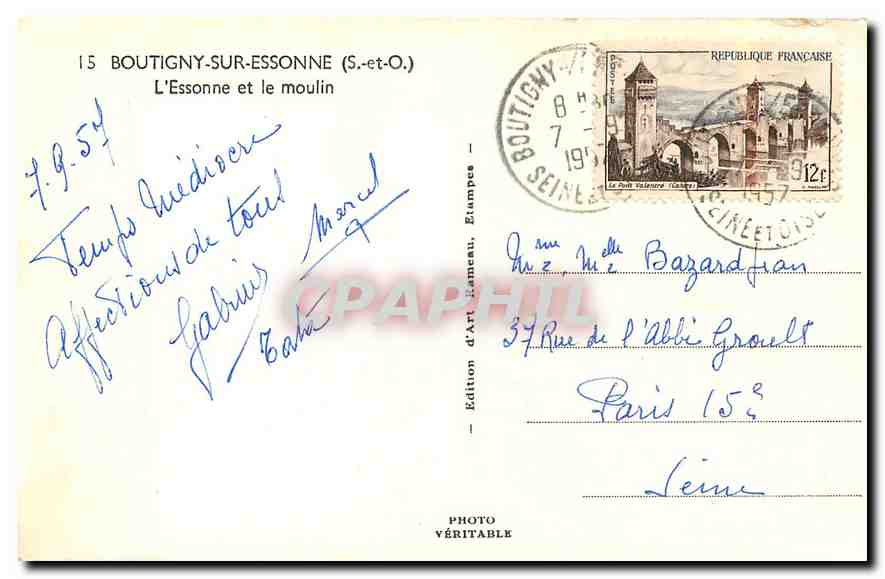 15 BOUTIGNY-SUR-ESSONNE (S.-et-O.)
L'Essonne et le moulin
7.9.57
Temps Médiocre
Affections de tous
Marcel
Tata
REPUBLIQUE FRANÇAISE
POSTES
12F
Le Pont Valentré (Cahors)
BOUTIGNY
8H
7 - 9
1957
SEINE ET
9
1957
SEINE ET OISE
Mme, Melle Bazard Jean
37 Rue de l'Abbé Groult
Paris 15e
Seine
— Edition d'Art Rameau, Etampes —
PHOTO
VÉRITABLE
CPAPHIL